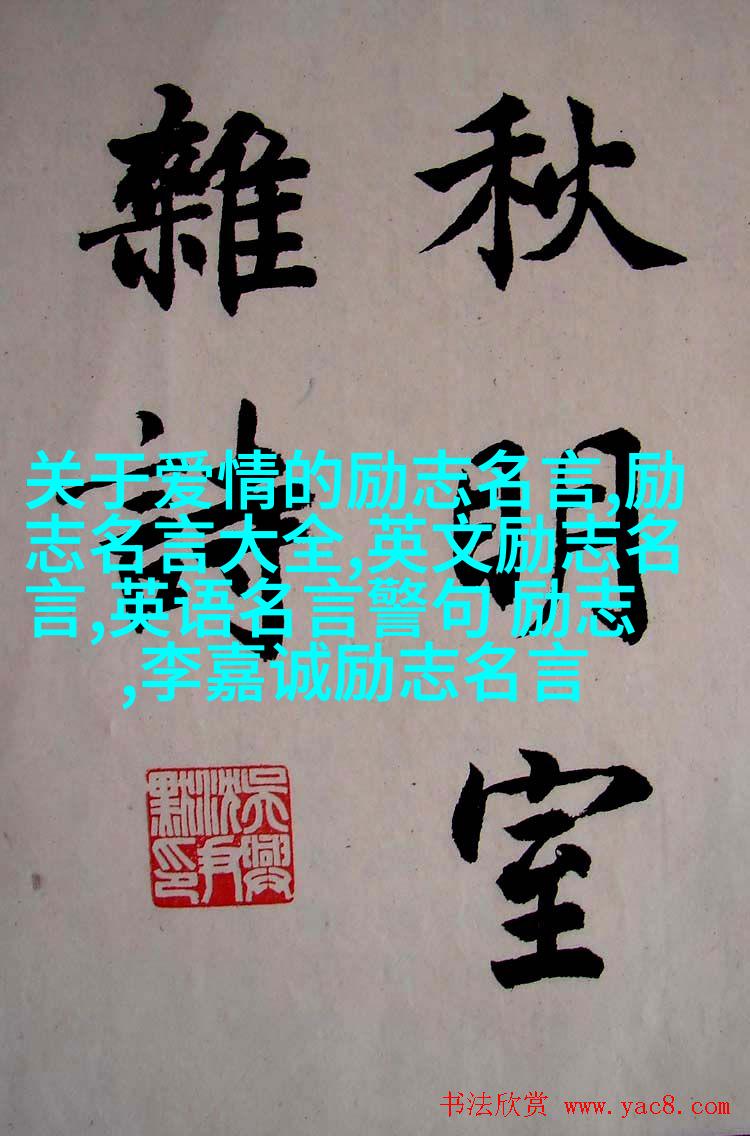 秋明室
雜詩
关于爱情的励志名言,励
志名言大全,英文励志名
言,英语名言警句 励志
,李嘉诚励志名言
吳興
沈尹
默印
书法欣赏 www.yac8.com